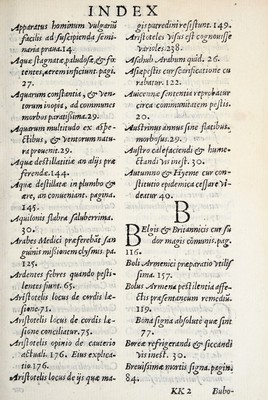 INDEX
Apparatus hominum vulgariũ
facilis ad suscipienda semi-
naria praua.14.
Aquæ stagnatæ, paludosæ, & fæ
tentes, aerem inficiunt. pagi.
27.
Aquarum constantia, & ven-
torum inopia, ad communes
morbos paratissima.29.
Aquarum multitudo ex aspe-
ctibus, & ventorum natu-
ra prouenit.29.
Aquæ destillatitiæ an alijs præ
ferendæ.144.
Aquæ destillatæ in plumbo &
ære, an conueniant. pagina.
145.
Aquilonis stabra saluberrima.
30.
Arabes Medici præferebāt san
guinis missionem clysmis. pa.
125.
Ardentes febres quando pesti-
lentes fiunt. 65.
Aristotelis locus de cordis læ-
sione.71.
Aristotelis locus de cordis læ-
sione conciliatur.75.
Aristotelis opinio de cauterio
actuali. 176. Eius explica-
tio 176.
Aristotelis locus de ijs quæ ma-
gis putredini resistunt. 149.
Aristoteles visus est cognouisse
variolas.238.
Asahub Arabum quid. 26.
Asiæpestis cur scarificatione cu
rabatur. 122.
Auicennæ sententia reprobatur
circa cōmunitatem pestis.
20.
Austrinus annus sine flatibus,
morbosus.29.
Austro calefaciendi & hume-
ctandi vis inest. 30.
Autumno & Hyeme cur con-
stitutio epidemica cessare vi-
deatur. 40.
B
Belgis & Britannicis cur su
dor magis cōmunis. pag.
116.
Boli Armenici præparatio vtilis
sima. 157.
Bolus Armena pestilentia affe-
ctis præsentaneum remediũ.
119.
Bona signa absolutè quæ sint
77.
Boreæ refrigerandi & siccandi
vis inest. 30.
Breuissimæ mortis signa. pagin.
84.
KK 2 Bubo-